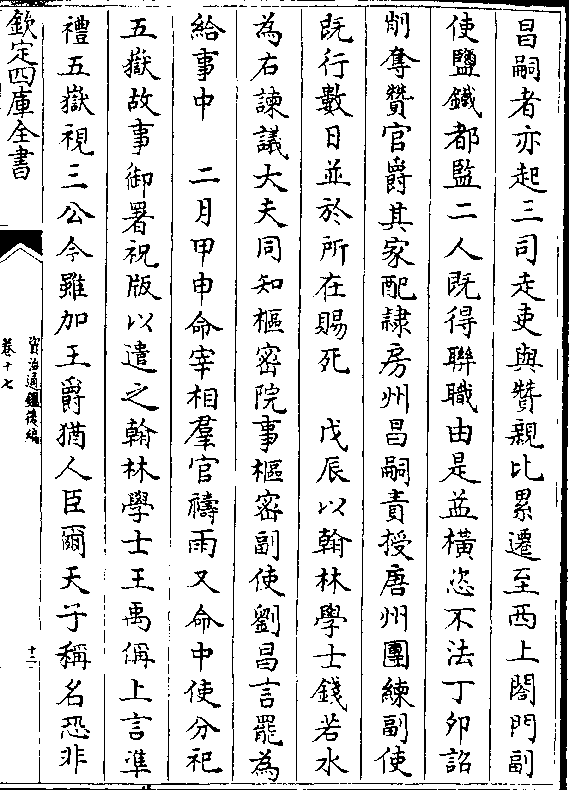 昌嗣者亦起三司走吏與贊親比累遷至西上閤門副
使鹽鐵都監二人既得聯職由是益橫恣不法丁卯詔
削奪贊官爵其家配隸房州昌嗣責授唐州團練副使
既行數日並於所在賜死　戊辰以翰林學士錢若水
為右諫議大夫同知樞密院事樞密副使劉昌言罷為
給事中　二月甲申命宰相羣官禱雨又命中使分祀
五嶽故事御署祝版以遣之翰林學士王禹偁上言準
禮五嶽視三公今雖加王爵猶人臣爾天子稱名恐非
欽定四庫全書
資治通鑑後編
卷十七
十二